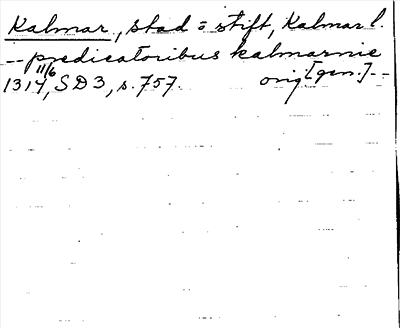 Kalmar, stad o stift, Kalmar l.
-- predicatoribus kalmarnie
11/6 1314, SD 3, s. 757. orig. [gen.] --